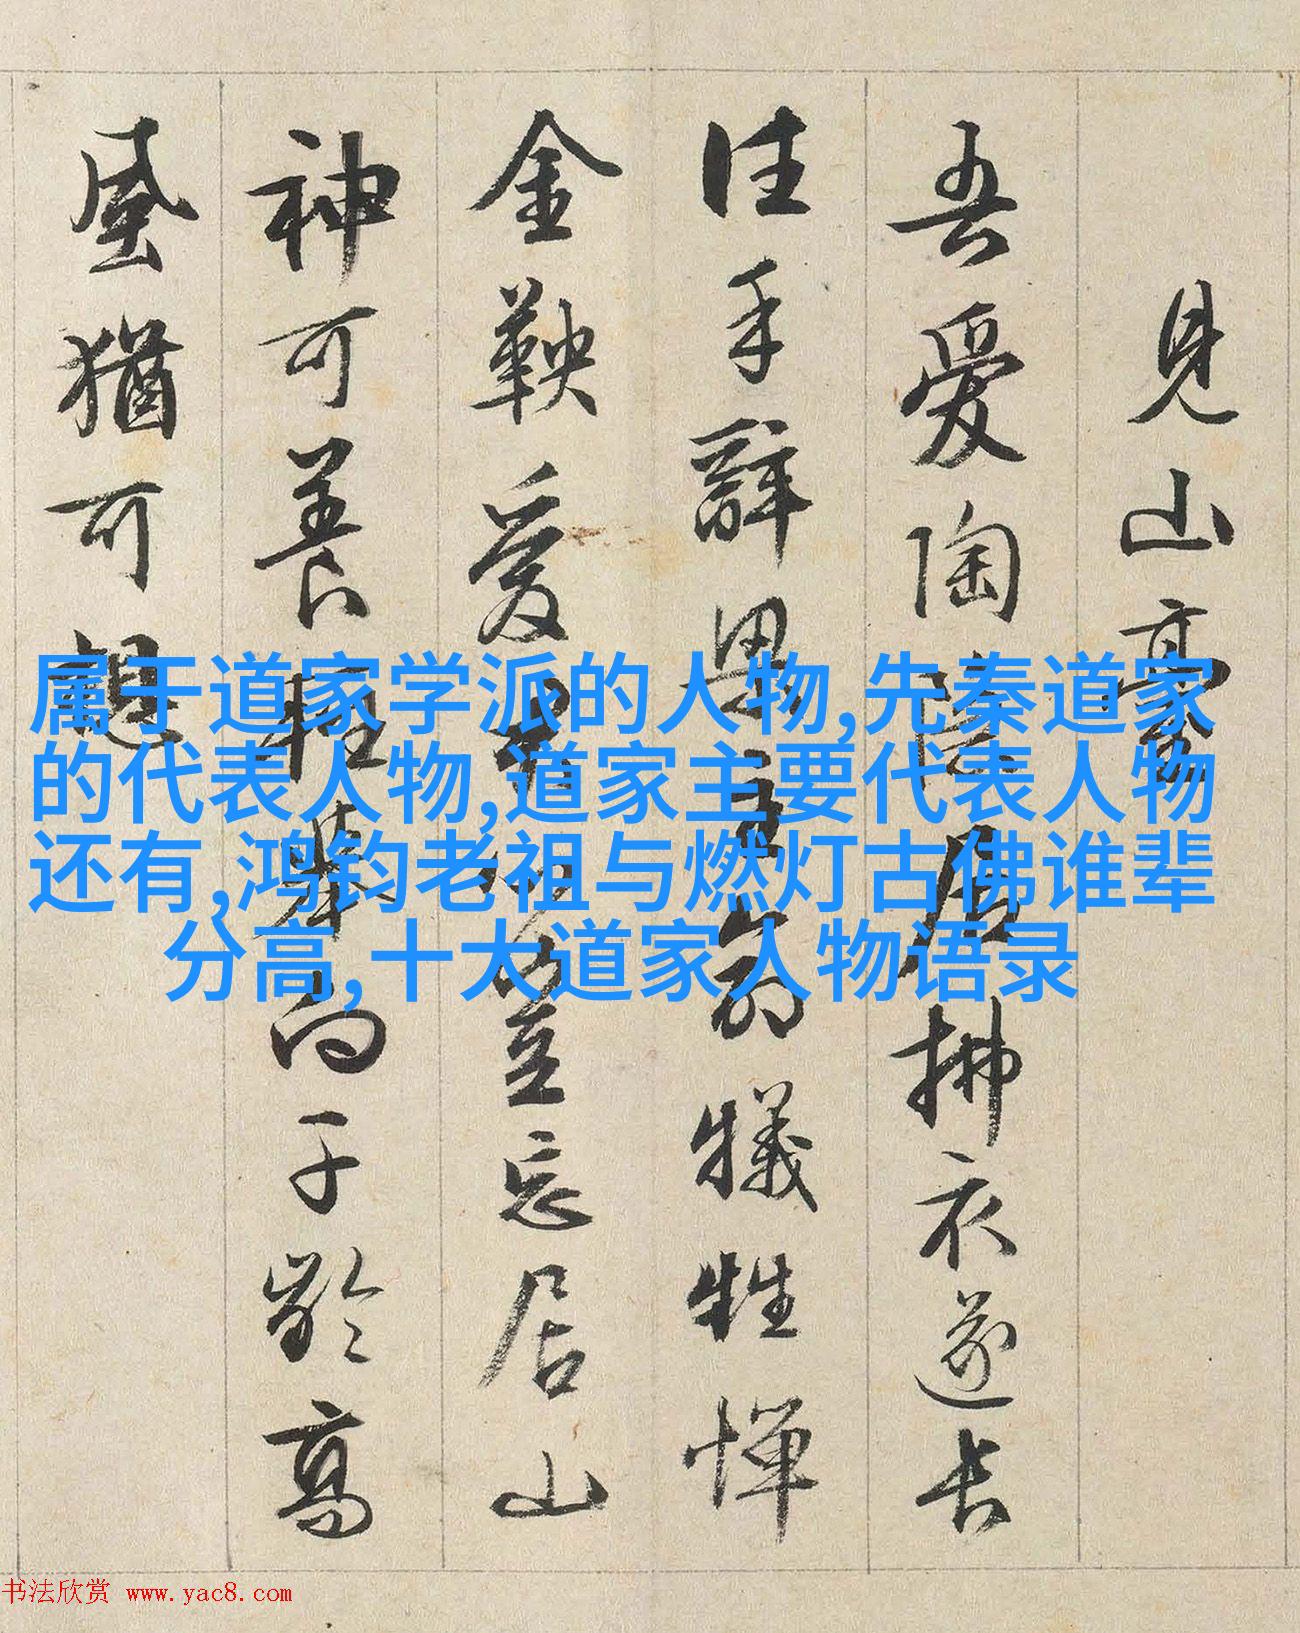 見山臺
吾愛陶隱居拂衣遂長
往手辭主命犧牲憚
金鞅愛豈忘居山
神可養輕舉向千齡高
風猶可想
属于道家学派的人物,先秦道家
的代表人物,道家主要代表人物
还有,鸿钧老祖与燃灯古佛谁辈
分高,十大道家人物语录
书法欣赏 www.yac8.com